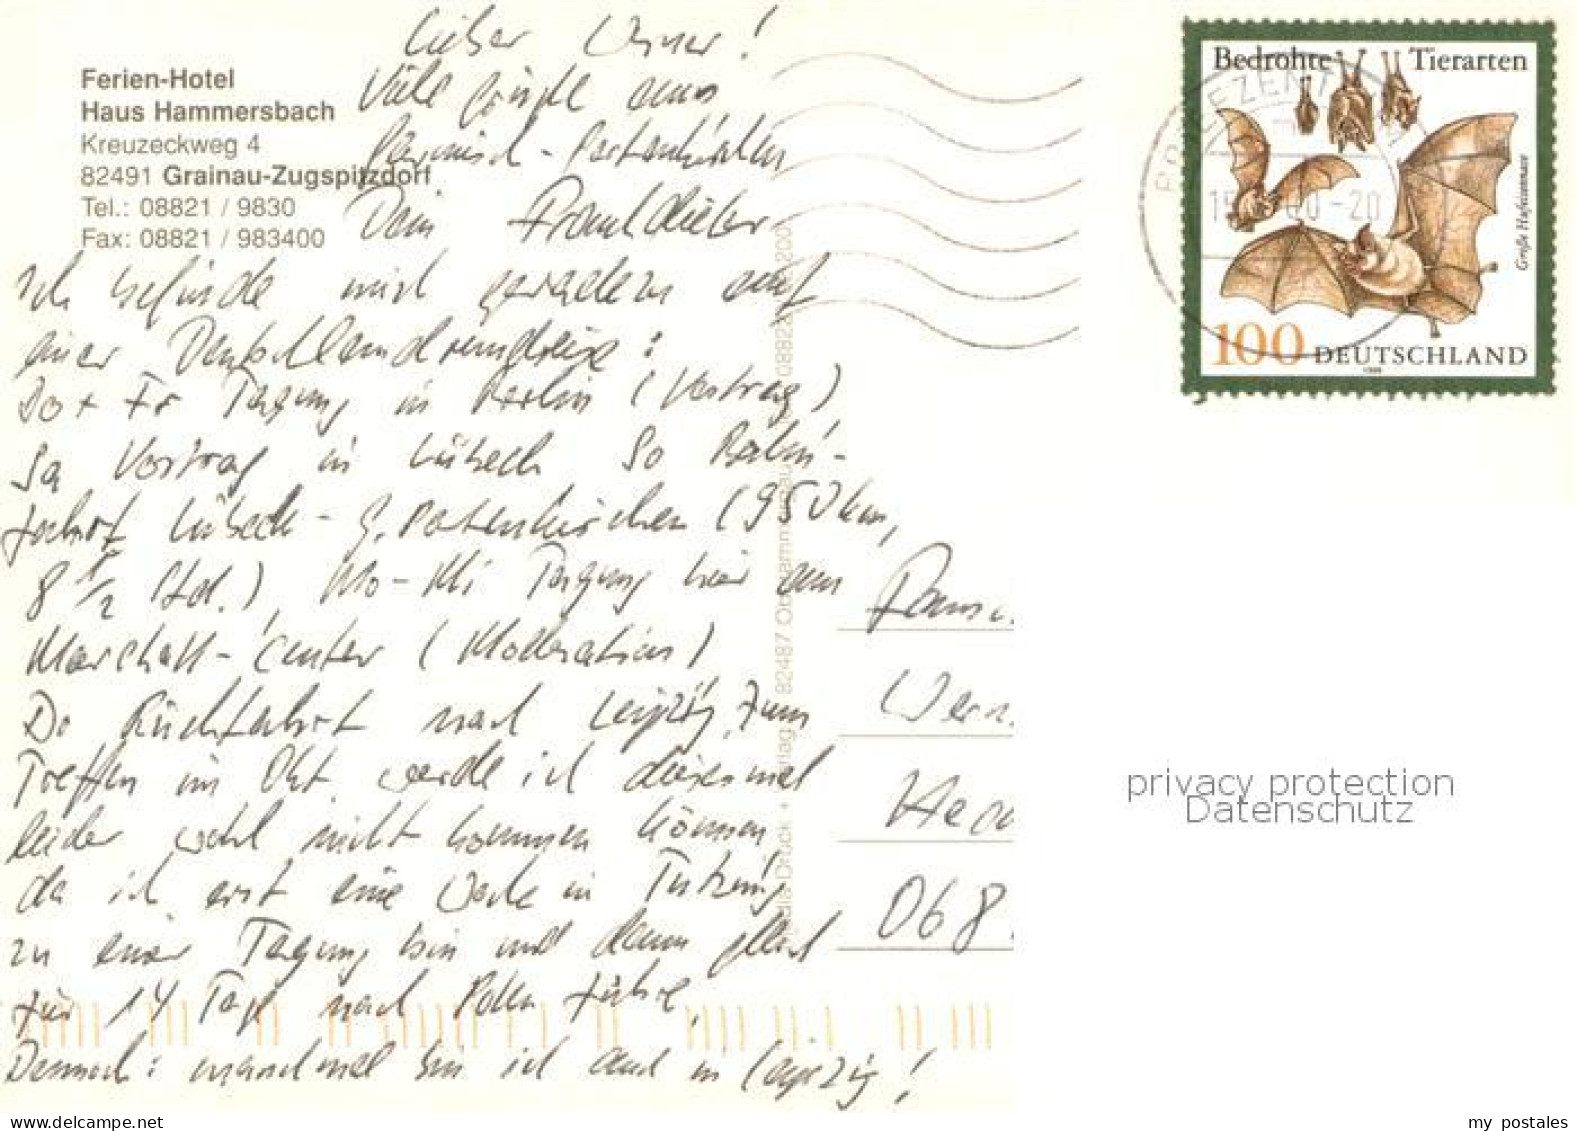 Ferien-Hotel
Haus Hammersbach
Kreuzeckweg 4
82491 Grainau-Zugspitzdorf
Tel.: 08821 / 9830
Fax: 08821 / 983400
Lieber Werner!
Viele Grüße aus
Garmisch-Partenkirchen
Dein
Ich befinde mich geradem auf
einer Deutschlandrundreise:
Do + Fr Tagung in Berlin (Vortrag)
Sa Vortrag in Lübeck So Bahn-
fahrt Lübeck - G. Partenkirchen (950 km,
8 1/2 Std.), Mo-Mi Tagung hier am
Marshall-Center (Moderation)
Do Rückfahrt nach Leipzig. Zum
Treffen im Okt. werde ich diesesmal
leider wohl nicht kommen können
da ich erst eine Woche in Tutzing
zu einer Tagung bin und dann gleich
für 14 Tage nach Polen fahre.
Dennoch: manchmal bin ich auch in Leipzig!
Wern
068
82487 Oberammergau
Bedrohte Tierarten
Große Hufeisennase
100 DEUTSCHLAND
BRIEFZENTRUM
privacy protection
Datenschutz
my postales